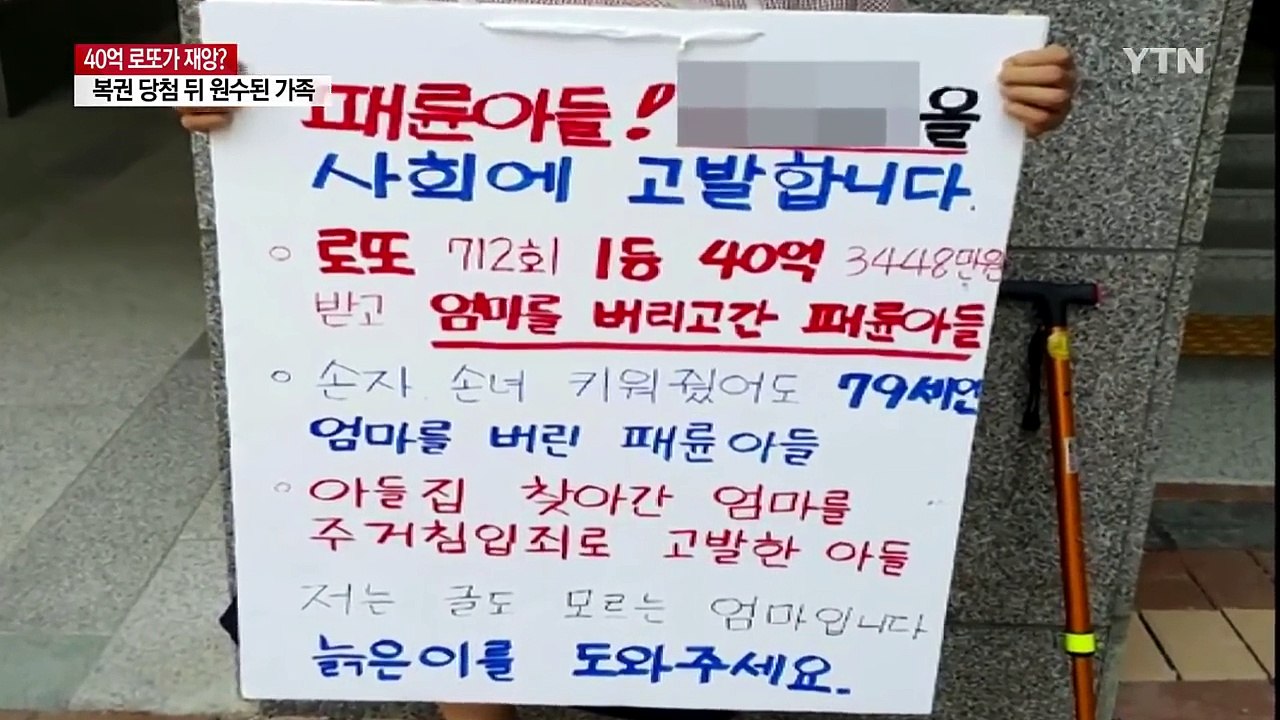 40억 로또가 재앙?
복권 당첨 뒤 원수된 가족
YTN
패륜아들! 을
사회에 고발합니다.
로또 712회 1등 40억 3448만원
받고 엄마를 버리고간 패륜아들
손자 손녀 키워줬어도 79세연
엄마를 버린 패륜아들
아들집 찾아간 엄마를
주거침입죄로 고발한 아들
저는 글도 모르는 엄마입니다
늙은이를 도와주세요.